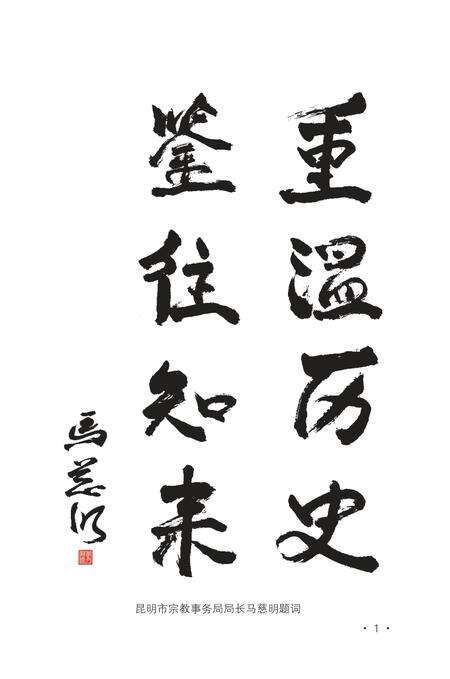 重温历史
鉴往知来
马慈明
昆明市宗教事务局局长马慈明题词
· 1 ·